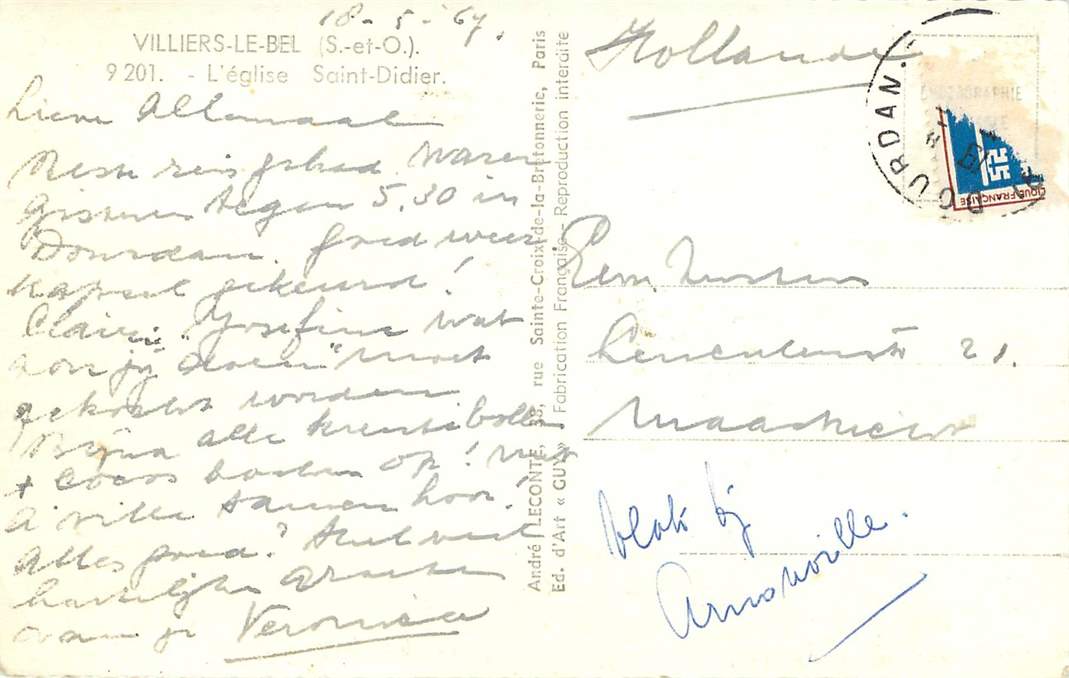 18-5-'67.
VILLIERS-LE-BEL (S.-et-O.).
9 201. - L'église Saint-Didier.
Lieve Allemaal
Beste reis gehad. Waren
gisteren tegen 5.30 in
Dourdan. Goed weer
gekeurd!
"Josefine wat
aan jij doen" moet
gekookt worden
Bijna alle krentebollen
+ Cocos op! met
à ville samen hoor!
Alles goed? Heel veel
hartelijke groeten
van je Veronica
André LECONTE, 38, rue Sainte-Croix-de-la-Bretonnerie, Paris
Ed. d'Art « GUY » Fabrication Française - Reproduction interdite
Hollande
DOURDAN
CIQUE FRANÇAISE
Fem.
21.
Maastricht
vlak bij
Arnouville.